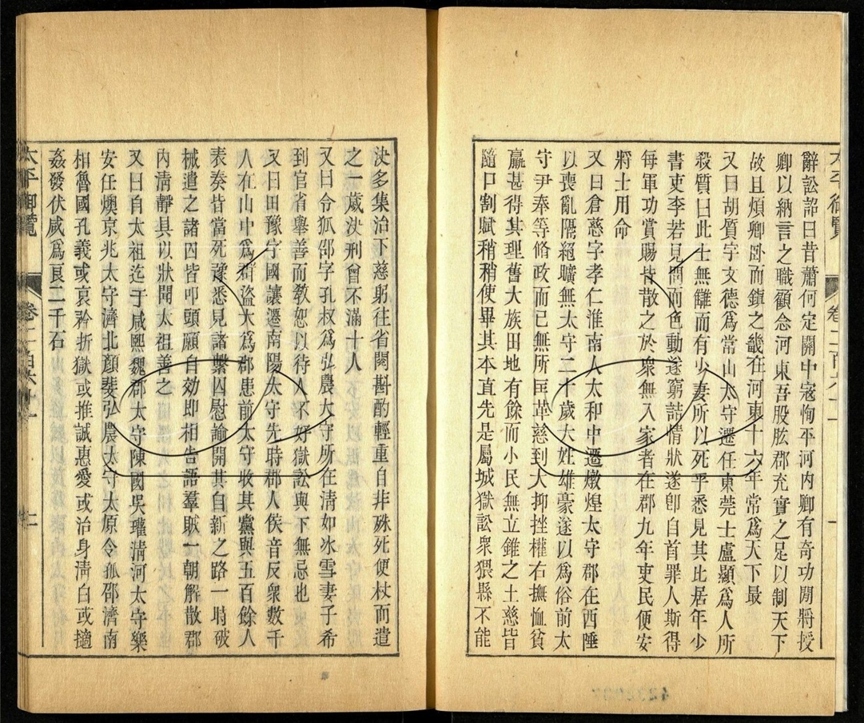 辭訟詔曰昔蕭何定關中寇恂平河內卿有奇功開將授
卿以納言之職顧念河東吾股肱郡充實之足以制天下
故且煩卿臥而鎮之畿在河東十六年常爲天下最
又曰胡質字文德爲常山太守遷任東莞士盧顯爲人所
殺質曰此士無讎而有少妻所以死乎悉見其比居年少
書吏李若見問而色動遂窮詰情狀遂卽自首罪人斯得
每軍功賞賜皆散之於衆無入家者在郡九年吏民便安
將士用命
又曰倉慈字孝仁淮南人太和中遷燉煌太守郡在西陲
以喪亂隔絕曠無太守二十歲大姓雄豪遂以爲俗前太
守尹奉等脩政而已無所匡革慈到大抑挫權右撫恤貧
羸甚得其理舊大族田地有餘而小民無立錐之土慈皆
隨口割賦稍稍使畢其本直先是屬城獄訟衆猥縣不能
太平御覽
卷二百六十一
決多集治下慈躬往省閱斟酌輕重自非殊死便杖而遣
之一歲決刑曾不滿十人
又曰令狐邵字孔叔爲弘農太守所在清如冰雪妻子希
到官省舉善而敎恕以待人不好獄訟與下無忌也
又曰田豫字國讓遷南陽太守先時郡人侯音反衆數千
人在山中爲群盜大爲郡患前太守收其黨與五百餘人
表奏皆當死豫悉見諸繫囚慰諭開其自新之路一時破
械遣之諸囚皆叩頭願自効卽相告語羣賊一朝解散郡
內清靜具以狀聞太祖善之
又曰自太祖迄于咸熙魏郡太守陳國吳瓘清河太守樂
安任燠京兆太守濟北顏斐弘農太守太原令孤邵濟南
相魯國孔羲或哀矜折獄或推誠惠愛或治身清白或擿
姦發伏咸爲良二千石
太平御覽
卷二百六十一